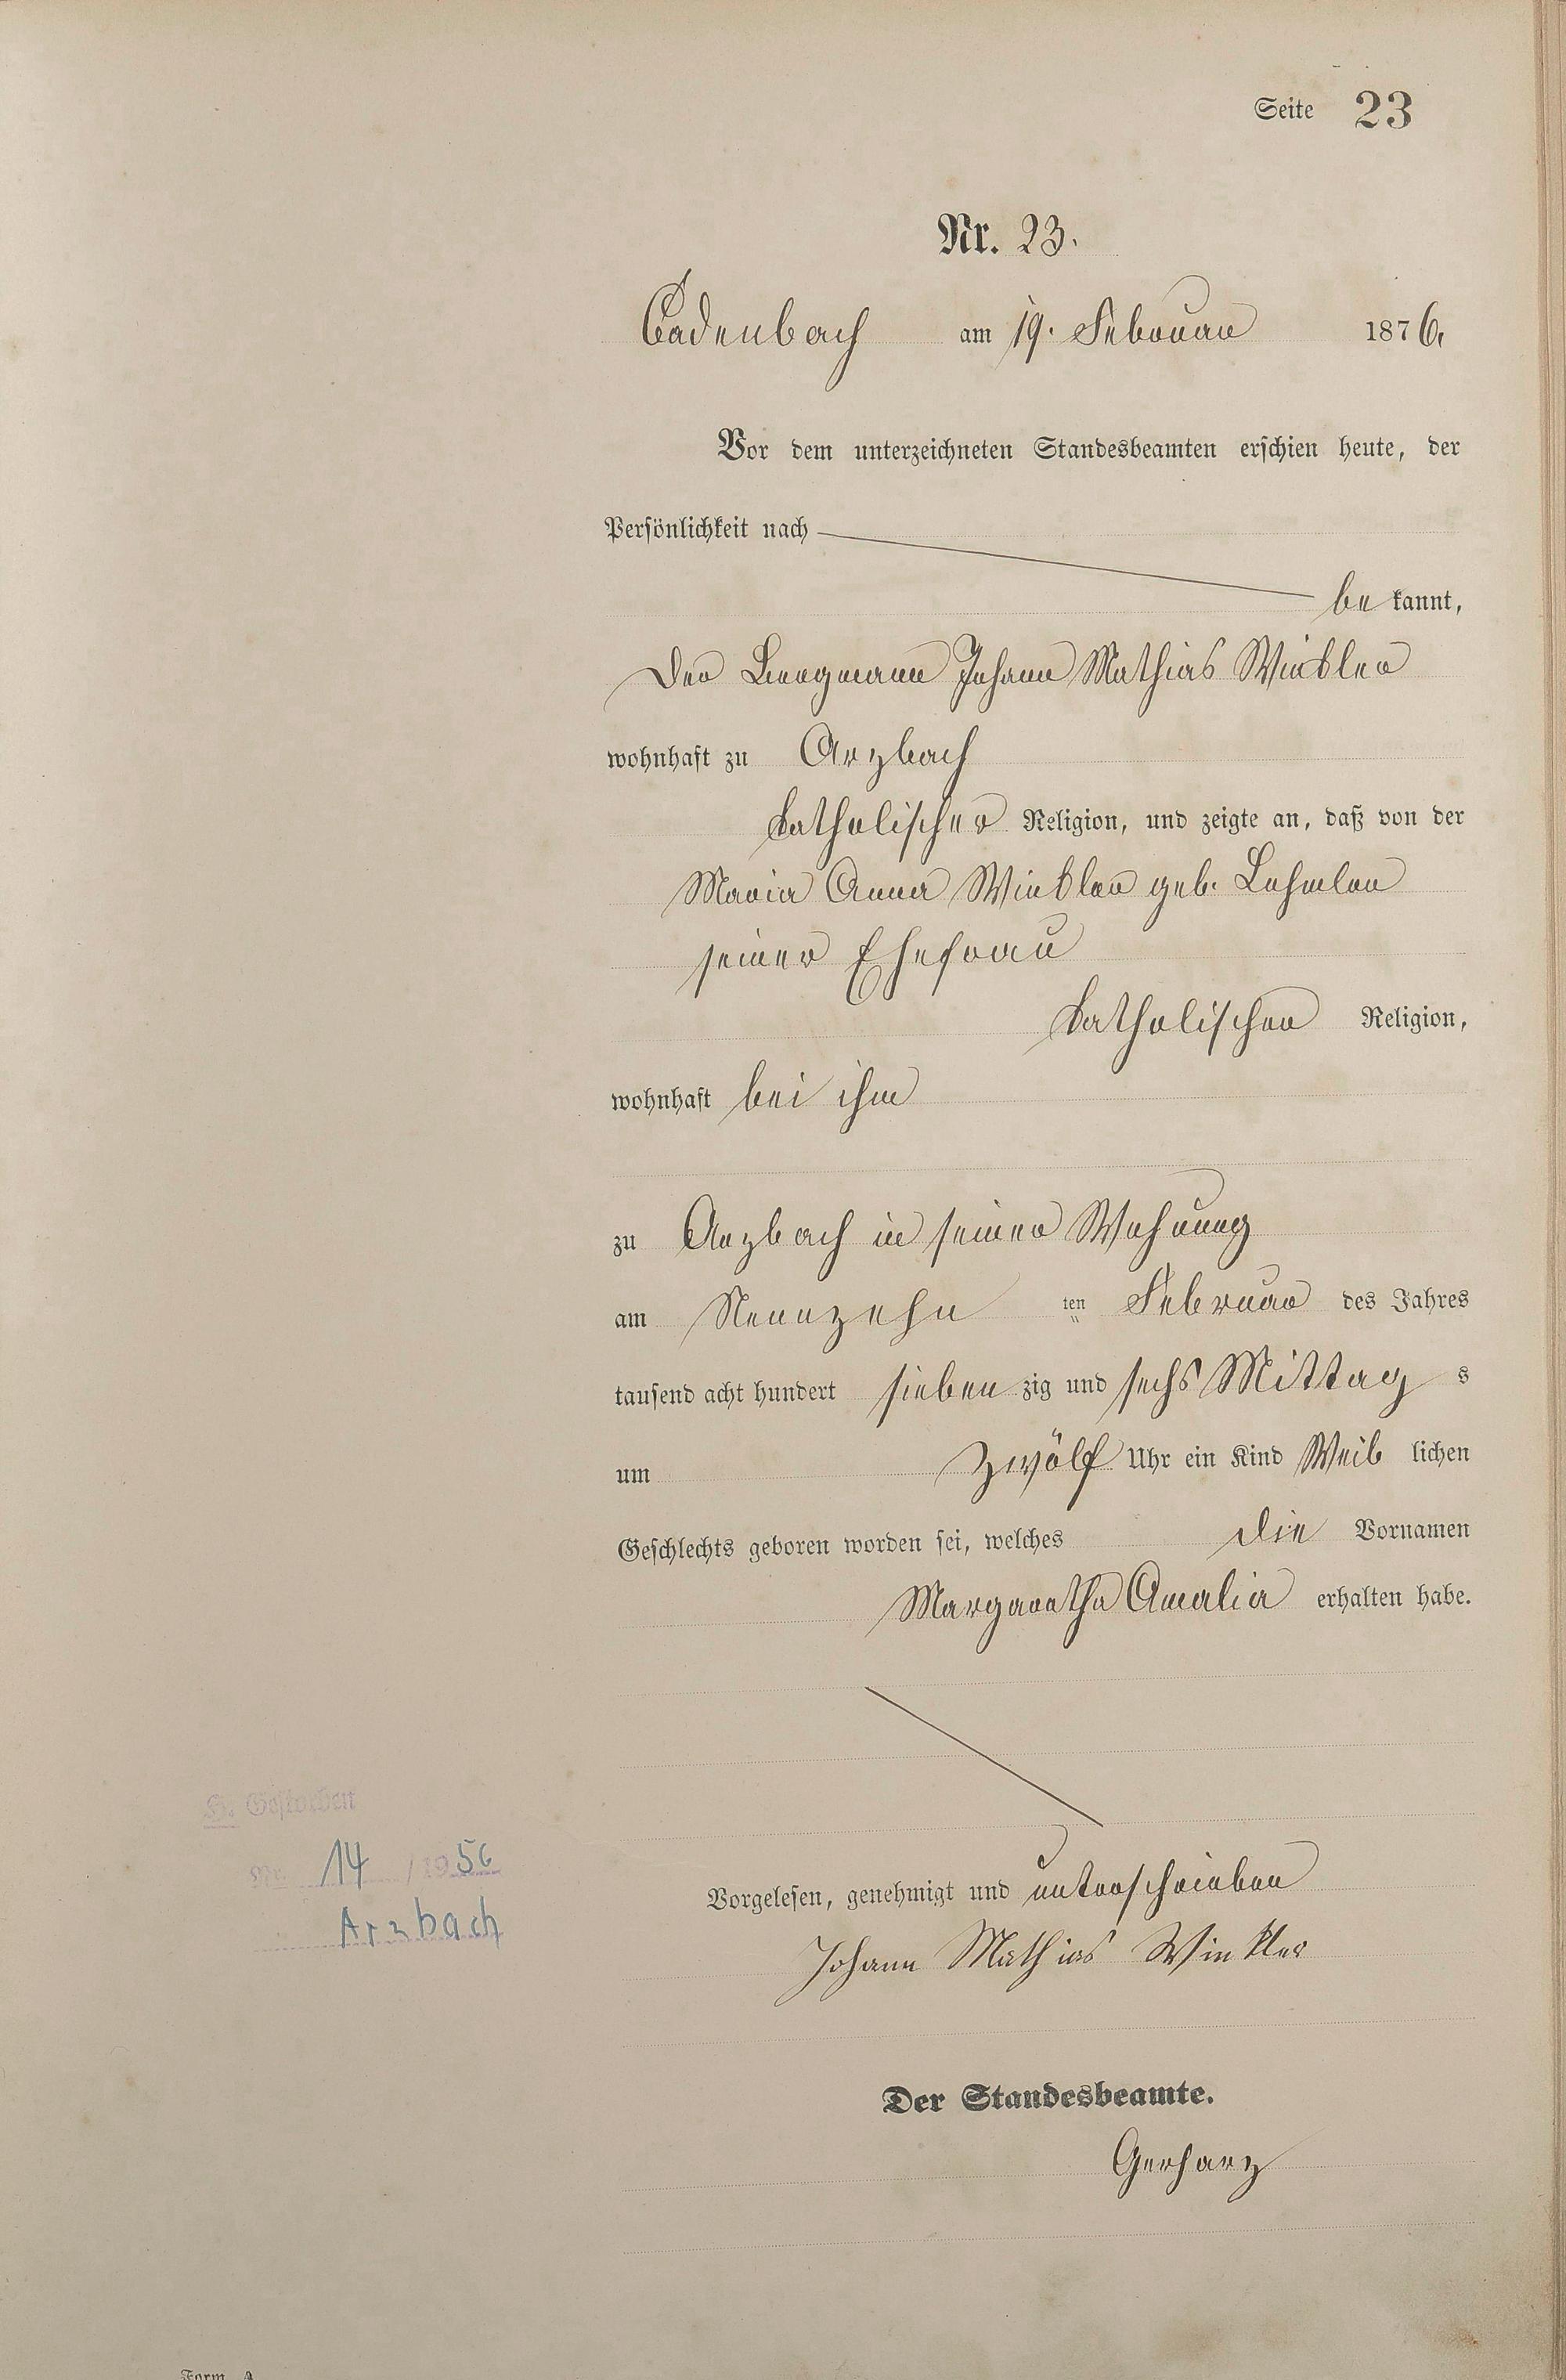 Seite 23
Nr. 23.
Cadenbach am 19. Februar 1876.
Vor dem unterzeichneten Standesbeamten erschien heute, der
Persönlichkeit nach
be kannt,
der Bergmann Johann Mathias Winkler
wohnhaft zu Arzbach
katholischer Religion, und zeigte an, daß von der
Maria Anna Winkler geb. Lehmler
seiner Ehefrau
katholischer Religion,
wohnhaft bei ihm
zu Arzbach in seiner Wohnung
am Neunzehn ten Februar des Jahres
tausend acht hundert sieben zig und sechs Mittag s
um zwölf Uhr ein Kind Weib lichen
Geschlechts geboren worden sei, welches die Vornamen
Margaretha Amalia erhalten habe.
H. Gestorben
Nr. 14 / 1956
Arzbach
Vorgelesen, genehmigt und unterschrieben
Johann Mathias Winkler
Der Standesbeamte.
Gerharz
Form